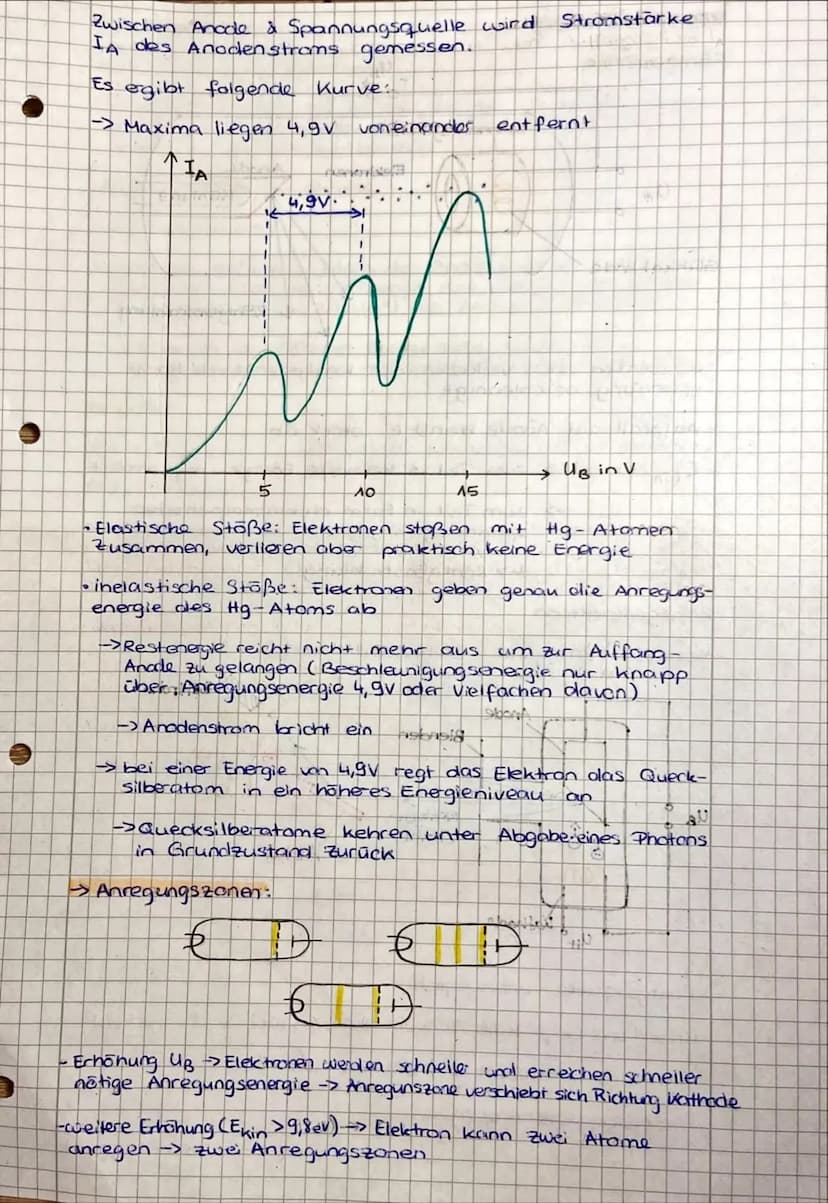 Zwischen Anode & Spannungsquelle wird Stromstärke
I_A des Anodenstroms gemessen.
Es ergibt folgende Kurve:
-> Maxima liegen 4,9V voneinander entfernt
I_A
4,9V
U_B in V
5 10 15
• Elastische Stöße: Elektronen stoßen mit Hg-Atomen
zusammen, verlieren aber praktisch keine Energie
• inelastische Stöße: Elektronen geben genau die Anregungs-
energie des Hg-Atoms ab
-> Restenergie reicht nicht mehr aus um zur Auffang-
Anode zu gelangen (Beschleunigungsenergie nur knapp
über Anregungsenergie 4,9V oder Vielfachen davon)
-> Anodenstrom bricht ein
-> bei einer Energie von 4,9V regt das Elektron das Queck-
silberatom in ein höheres Energieniveau an
-> Quecksilberatome kehren unter Abgabe eines Photons
in Grundzustand zurück
-> Anregungszonen:
- Erhöhung U_B -> Elektronen werden schneller und erreichen schneller
nötige Anregungsenergie -> Anregunszone verschiebt sich Richtung Kathode
- weitere Erhöhung (E_kin > 9,8eV) -> Elektron kann zwei Atome
anregen -> zwei Anregungszonen